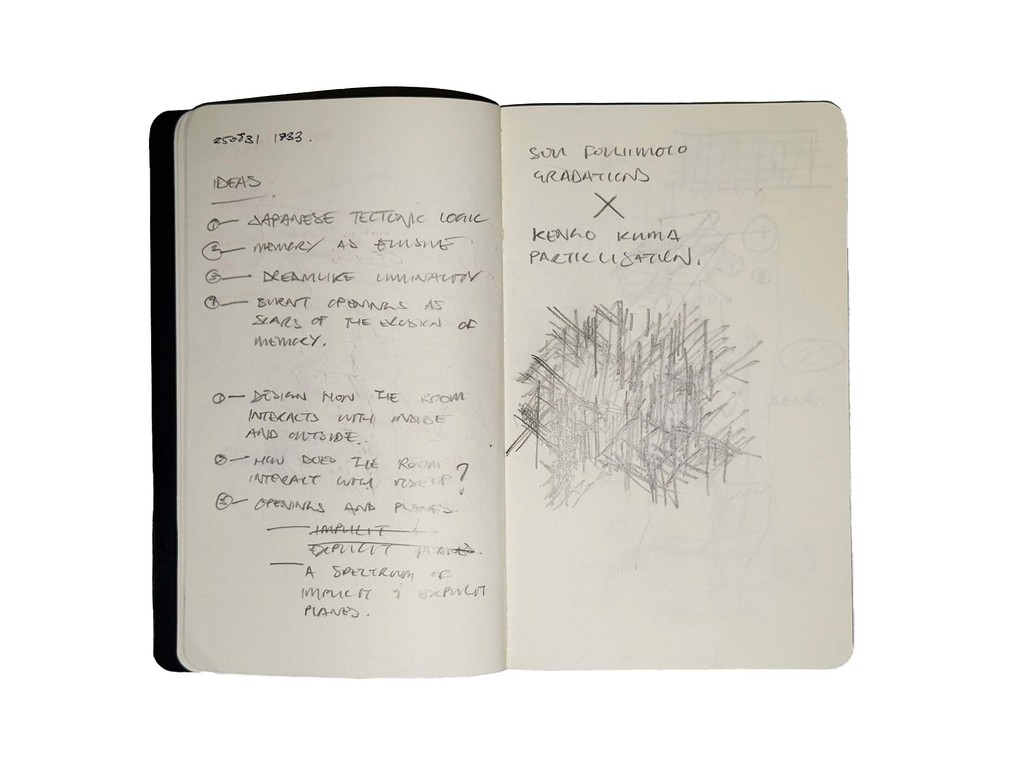 1733.
IDEAS
① — JAPANESE TECTONIC LOGIC
② — MEMORY AS ELUSIVE
③ — DREAMLIKE LIMINALITY
④ — BURNT OPENINGS AS
SCARS OF THE EROSION OF
MEMORY.
① — DESIGN HOW THE ROOM
INTERACTS WITH INSIDE
AND OUTSIDE.
② — HOW DOES THE ROOM
INTERACT WITH ITSELF?
③ — OPENINGS AND PLANES.
— IMPLICIT &
EXPLICIT PLANES.
— A SPECTRUM OF
IMPLICIT & EXPLICIT
PLANES.
SOU FOUJIMOTO
GRADATIONS
X
KENGO KUMA
PARTICLISATION.